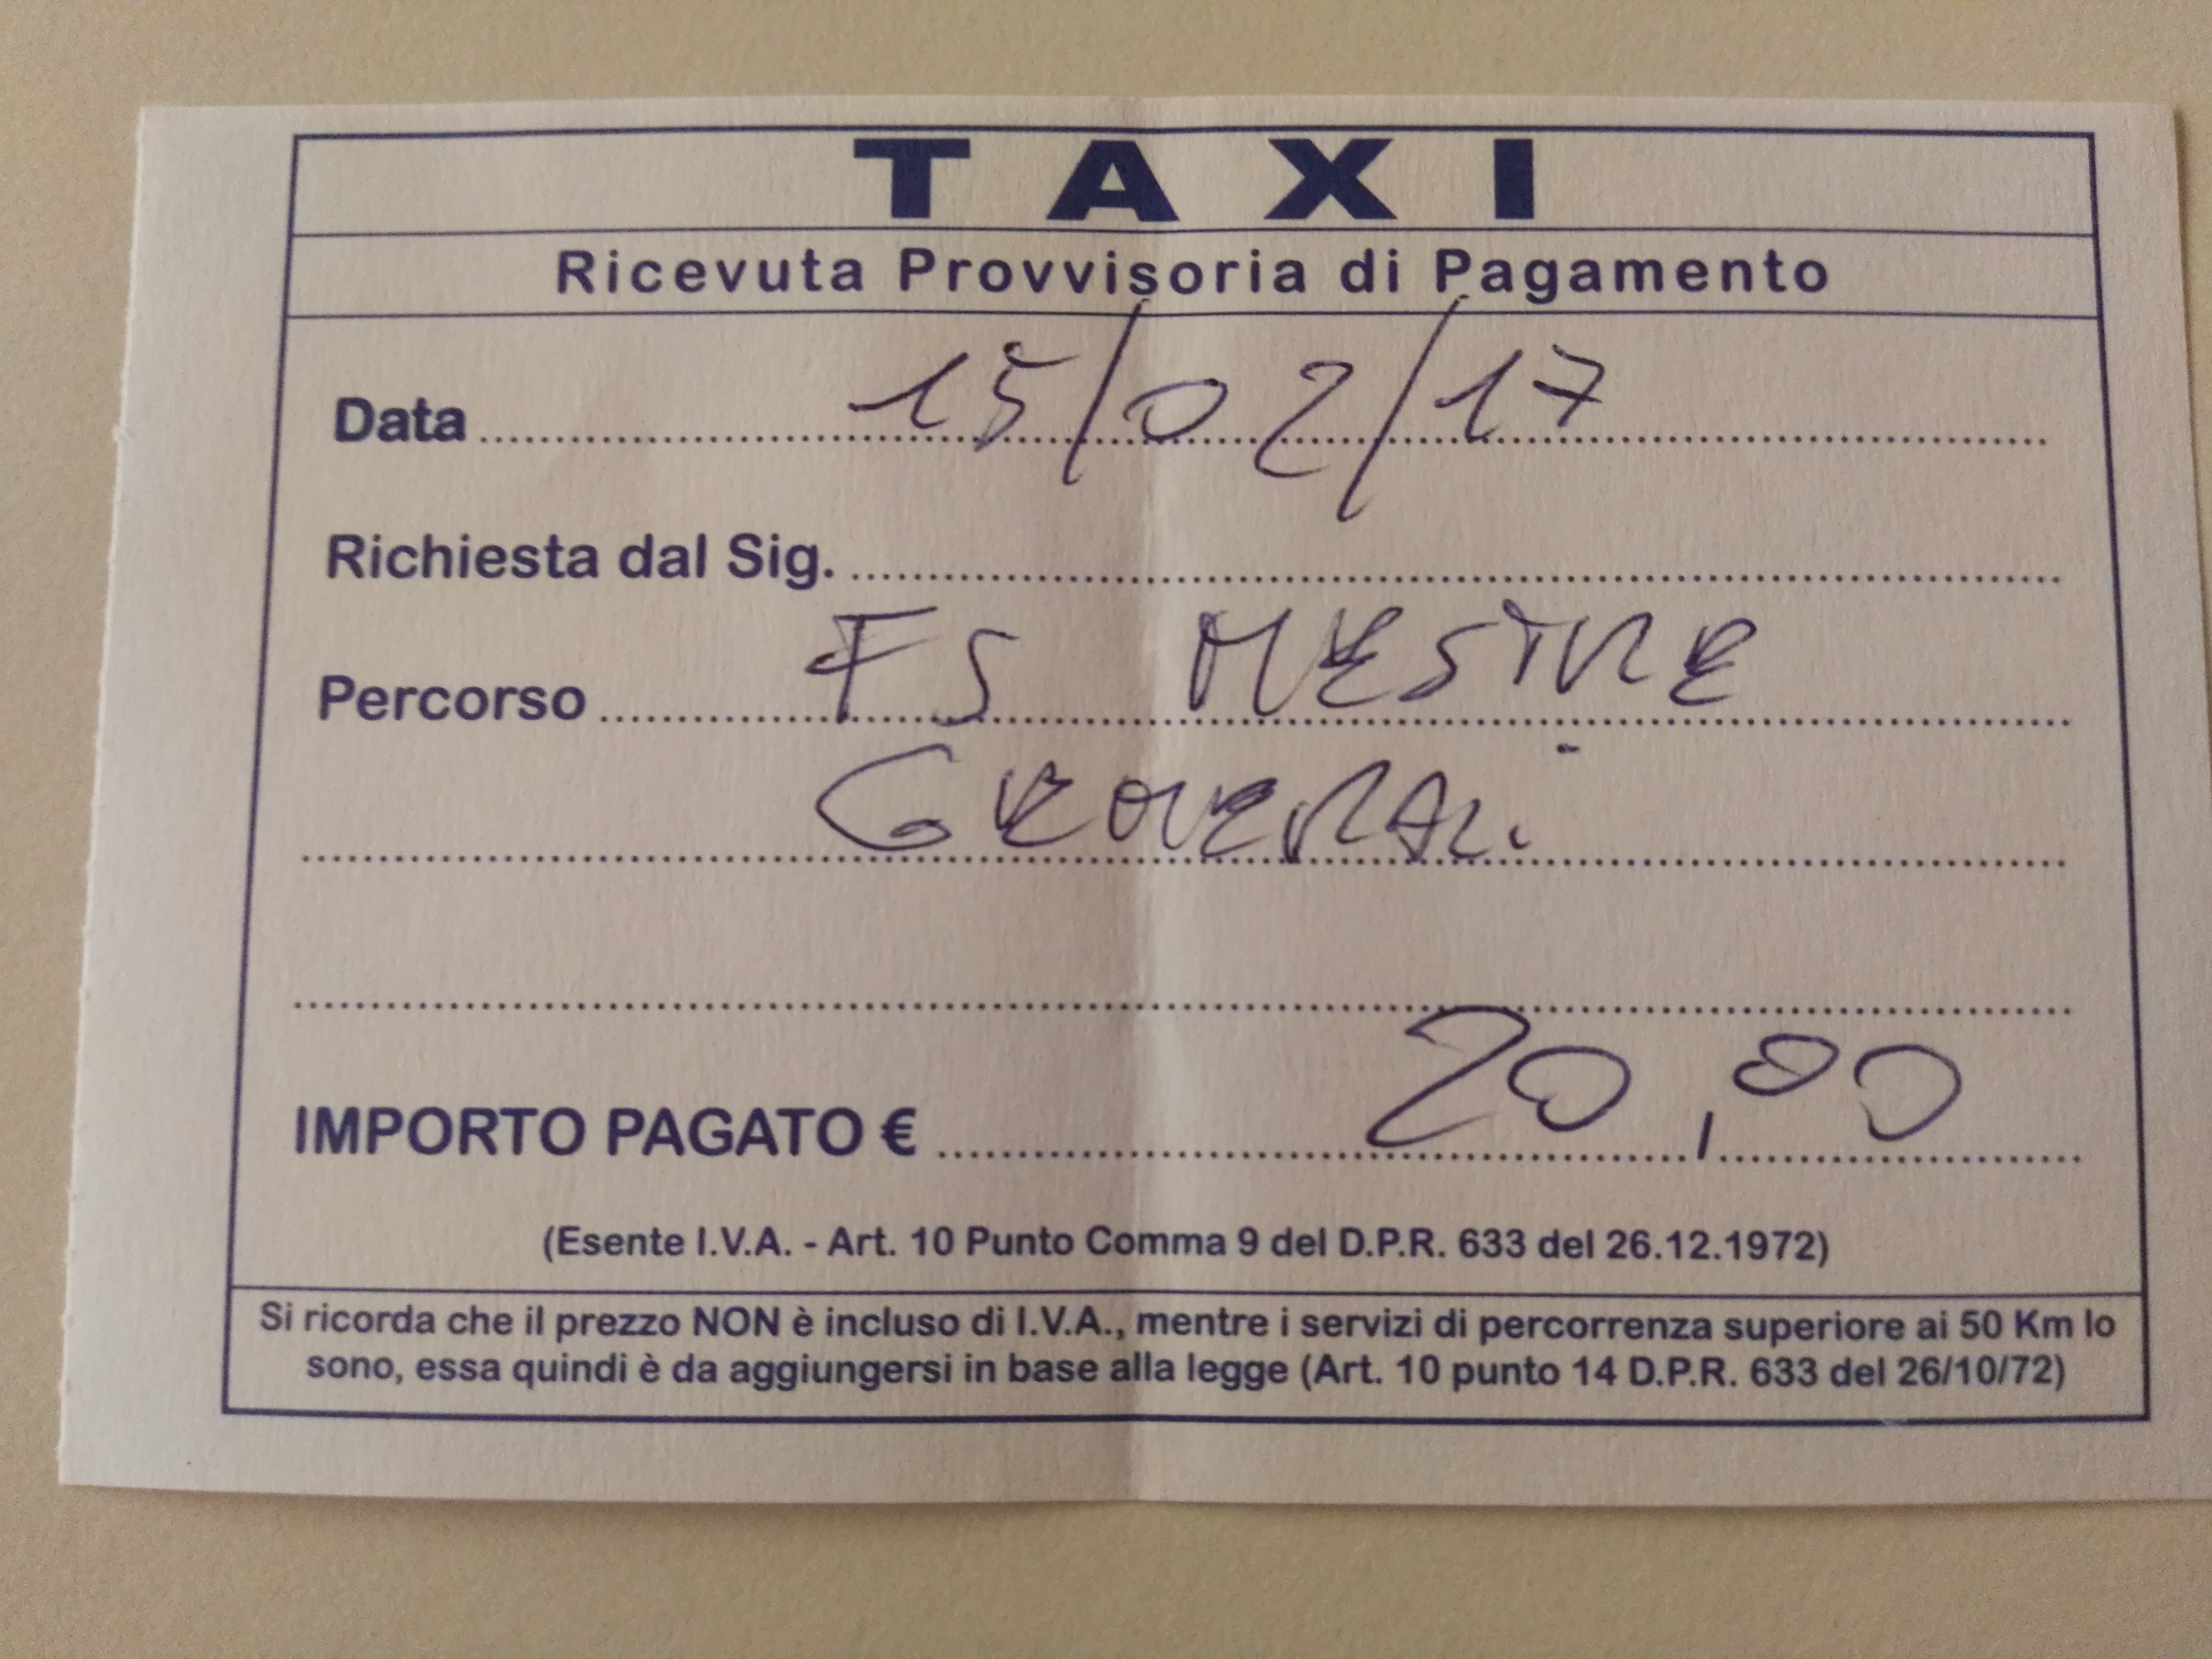 TAXI
Ricevuta Provvisoria di Pagamento
Data 15/02/17
Richiesta dal Sig.
Percorso FS MESTRE
GENERALI
IMPORTO PAGATO € 20,00
(Esente I.V.A. - Art. 10 Punto Comma 9 del D.P.R. 633 del 26.12.1972)
Si ricorda che il prezzo NON è incluso di I.V.A., mentre i servizi di percorrenza superiore ai 50 Km lo
sono, essa quindi è da aggiungersi in base alla legge (Art. 10 punto 14 D.P.R. 633 del 26/10/72)